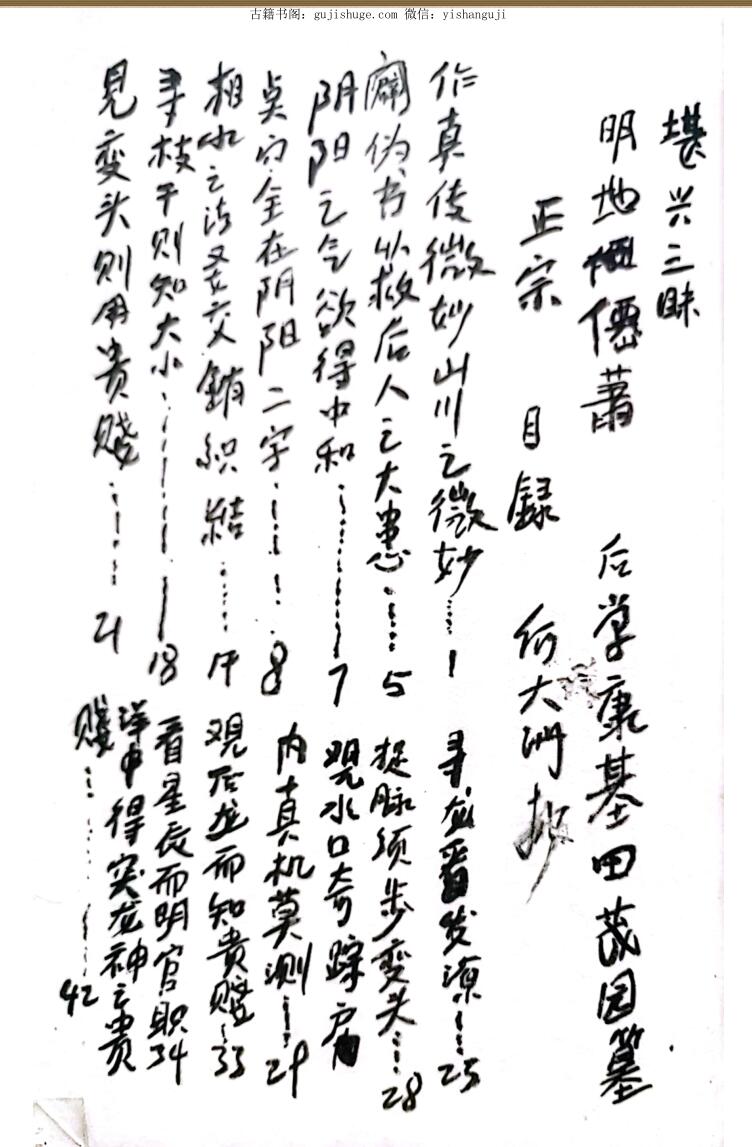 古籍书阁：gujishuge.com 微信：yishanguji
堪兴三昧
明地仙僊萧 后学康基田茂园纂
正宗 目録 何大洲抄
作真传微妙山川之微妙……1
闢伪书以救后人之大患……5
阴阳之气欲得中和………7
真穴全在阴阳二字……8
相水之法 交 織結……17
寻枝干则知大小………18
見变头则用贵贱……21
寻龙看发源……25
捉脉须步变头……28
观水口奇踪
内真机莫测……29
观后龙而知貴贱…33
看星辰而明官职34
洋中得突龙神之贵
贱………42